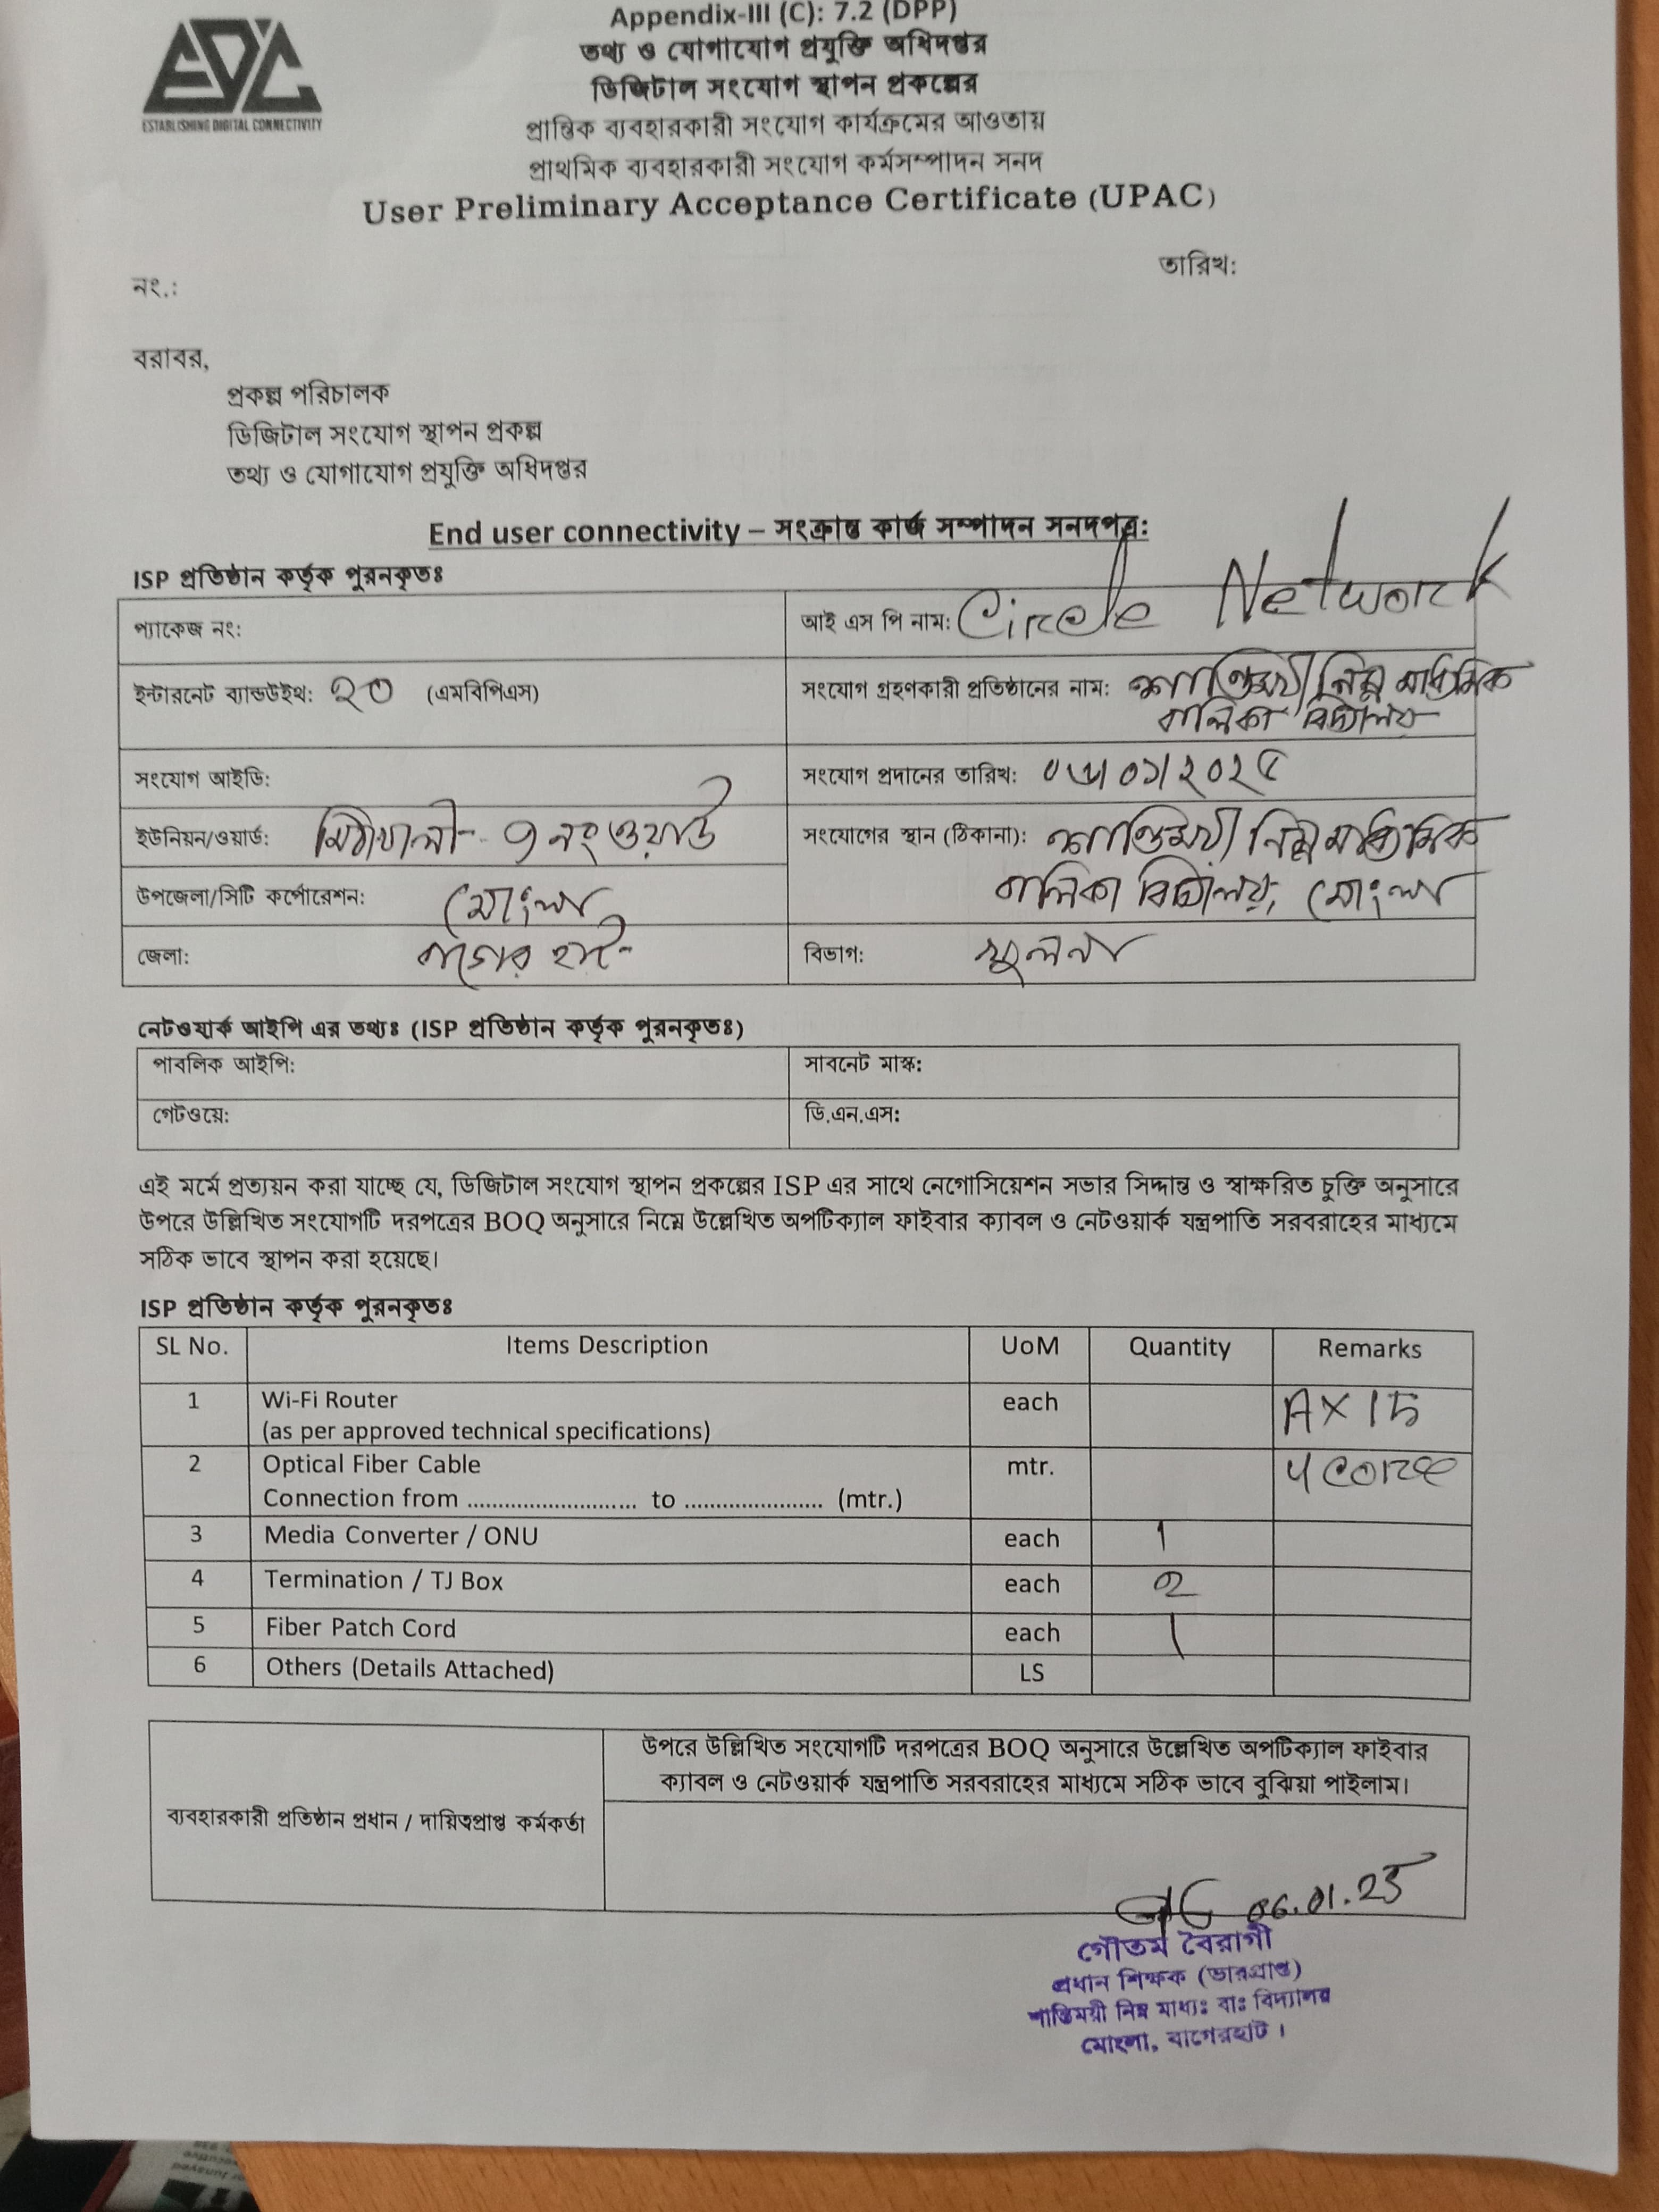 EDC
ESTABLISHING DIGITAL CONNECTIVITY
Appendix-III (C): 7.2 (DPP)
তথ্য ও যোগাযোগ প্রযুক্তি অধিদপ্তর
ডিজিটাল সংযোগ স্থাপন প্রকল্পের
প্রান্তিক ব্যবহারকারী সংযোগ কার্যক্রমের আওতায়
প্রাথমিক ব্যবহারকারী সংযোগ কর্মসম্পাদন সনদ
User Preliminary Acceptance Certificate (UPAC)
তারিখ:
নং.:
বরাবর,
প্রকল্প পরিচালক
ডিজিটাল সংযোগ স্থাপন প্রকল্প
তথ্য ও যোগাযোগ প্রযুক্তি অধিদপ্তর
End user connectivity – সংক্রান্ত কার্জ সম্পাদন সনদপত্র:
ISP প্রতিষ্ঠান কর্তৃক পুরনকৃতঃ
প্যাকেজ নং:
আই এস পি নাম: Circle Network
ইন্টারনেট ব্যান্ডউইথ: ২০ (এমবিপিএস)
সংযোগ গ্রহণকারী প্রতিষ্ঠানের নাম: শান্তিময়ী নিম্ন মাধ্যমিক
বালিকা বিদ্যালয়
সংযোগ আইডি:
সংযোগ প্রদানের তারিখ: ০৬/০১/২০২৫
ইউনিয়ন/ওয়ার্ড: মিঠাখালী- ৭ নং ওয়ার্ড
সংযোগের স্থান (ঠিকানা): শান্তিময়ী নিম্ন মাধ্যমিক
বালিকা বিদ্যালয়, মোংলা
উপজেলা/সিটি কর্পোরেশন: মোংলা
জেলা: বাগেরহাট
বিভাগ: খুলনা
নেটওয়ার্ক আইপি এর তথ্যঃ (ISP প্রতিষ্ঠান কর্তৃক পুরনকৃতঃ)
পাবলিক আইপি:
সাবনেট মাস্ক:
গেটওয়ে:
ডি.এন.এস:
এই মর্মে প্রত্যয়ন করা যাচ্ছে যে, ডিজিটাল সংযোগ স্থাপন প্রকল্পের ISP এর সাথে নেগোসিয়েশন সভার সিদ্দান্ত ও স্বাক্ষরিত চুক্তি অনুসারে
উপরে উল্লিখিত সংযোগটি দরপত্রের BOQ অনুসারে নিম্নে উল্লেখিত অপটিক্যাল ফাইবার ক্যাবল ও নেটওয়ার্ক যন্ত্রপাতি সরবরাহের মাধ্যমে
সঠিক ভাবে স্থাপন করা হয়েছে।
ISP প্রতিষ্ঠান কর্তৃক পুরনকৃতঃ
SL No. Items Description UoM Quantity Remarks
1 Wi-Fi Router each AX 15
(as per approved technical specifications)
2 Optical Fiber Cable mtr. 4 core
Connection from ............................ to ....................... (mtr.)
3 Media Converter / ONU each 1
4 Termination / TJ Box each 2
5 Fiber Patch Cord each 1
6 Others (Details Attached) LS
উপরে উল্লিখিত সংযোগটি দরপত্রের BOQ অনুসারে উল্লেখিত অপটিক্যাল ফাইবার
ক্যাবল ও নেটওয়ার্ক যন্ত্রপাতি সরবরাহের মাধ্যমে সঠিক ভাবে বুঝিয়া পাইলাম।
ব্যবহারকারী প্রতিষ্ঠান প্রধান / দায়িত্বপ্রাপ্ত কর্মকর্তা
06.01.25
গৌতম বৈরাগী
প্রধান শিক্ষক (ভারপ্রাপ্ত)
শান্তিময়ী নিম্ন মাধ্যঃ বাঃ বিদ্যালয়
মোংলা, বাগেরহাট।